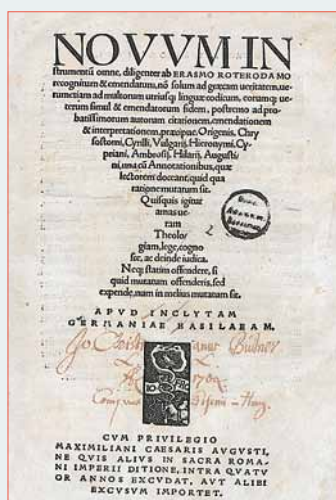 NOVVM IN
strumentū omne, diligenter ab ERASMO ROTERODAMO
recognitum & emendatum, nō solum ad græcam ueritatem, ue-
rumetiam ad multorum utriusq; linguæ codicum, eorumq; ue-
terum simul & emendatorum fidem, postremo ad pro-
batissimorum autorum citationem, emendationem
& interpretationem, præcipue, Origenis, Chry
sostomi, Cyrilli, Vulgarij, Hieronymi, Cy-
priani, Ambrosij, Hilarij, Augusti-
ni, una cū Annotationibus, quæ
lectorem doceant, quid qua
ratione mutatum sit.
Quisquis igitur
amas ue-
ram
Theolo-
giam, lege, cogno
sce, ac deinde iudica.
Neq; statim offendere, si
quid mutatum offenderis, sed
expende, num in melius mutatum sit.
APVD INCLYTAM
GERMANIAE BASILAEAM.
CVM PRIVILEGIO
MAXIMILIANI CAESARIS AVGVSTI,
NE QVIS ALIVS IN SACRA ROMA-
NI IMPERII DITIONE, INTRA QVATV
OR ANNOS EXCVDAT, AVT ALIBI
EXCVSVM IMPORTET.